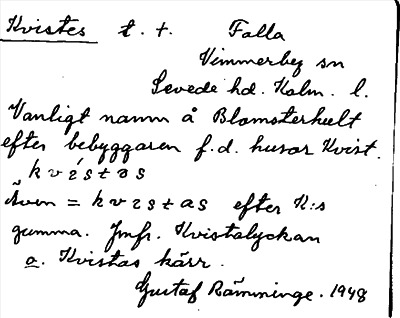 Kvistes t. +. Falla
Vimmerby sn
Sevede hd. Kalm. l.
Vanligt namn å Blomsterhult
efter bebyggaren f.d. husar Kvist.
kvístəs
Även = kvistas efter K:s
gumma. Jmfr. Kvistalyckan
o. Kvistas kärr.
Gustaf Rämminge. 1948